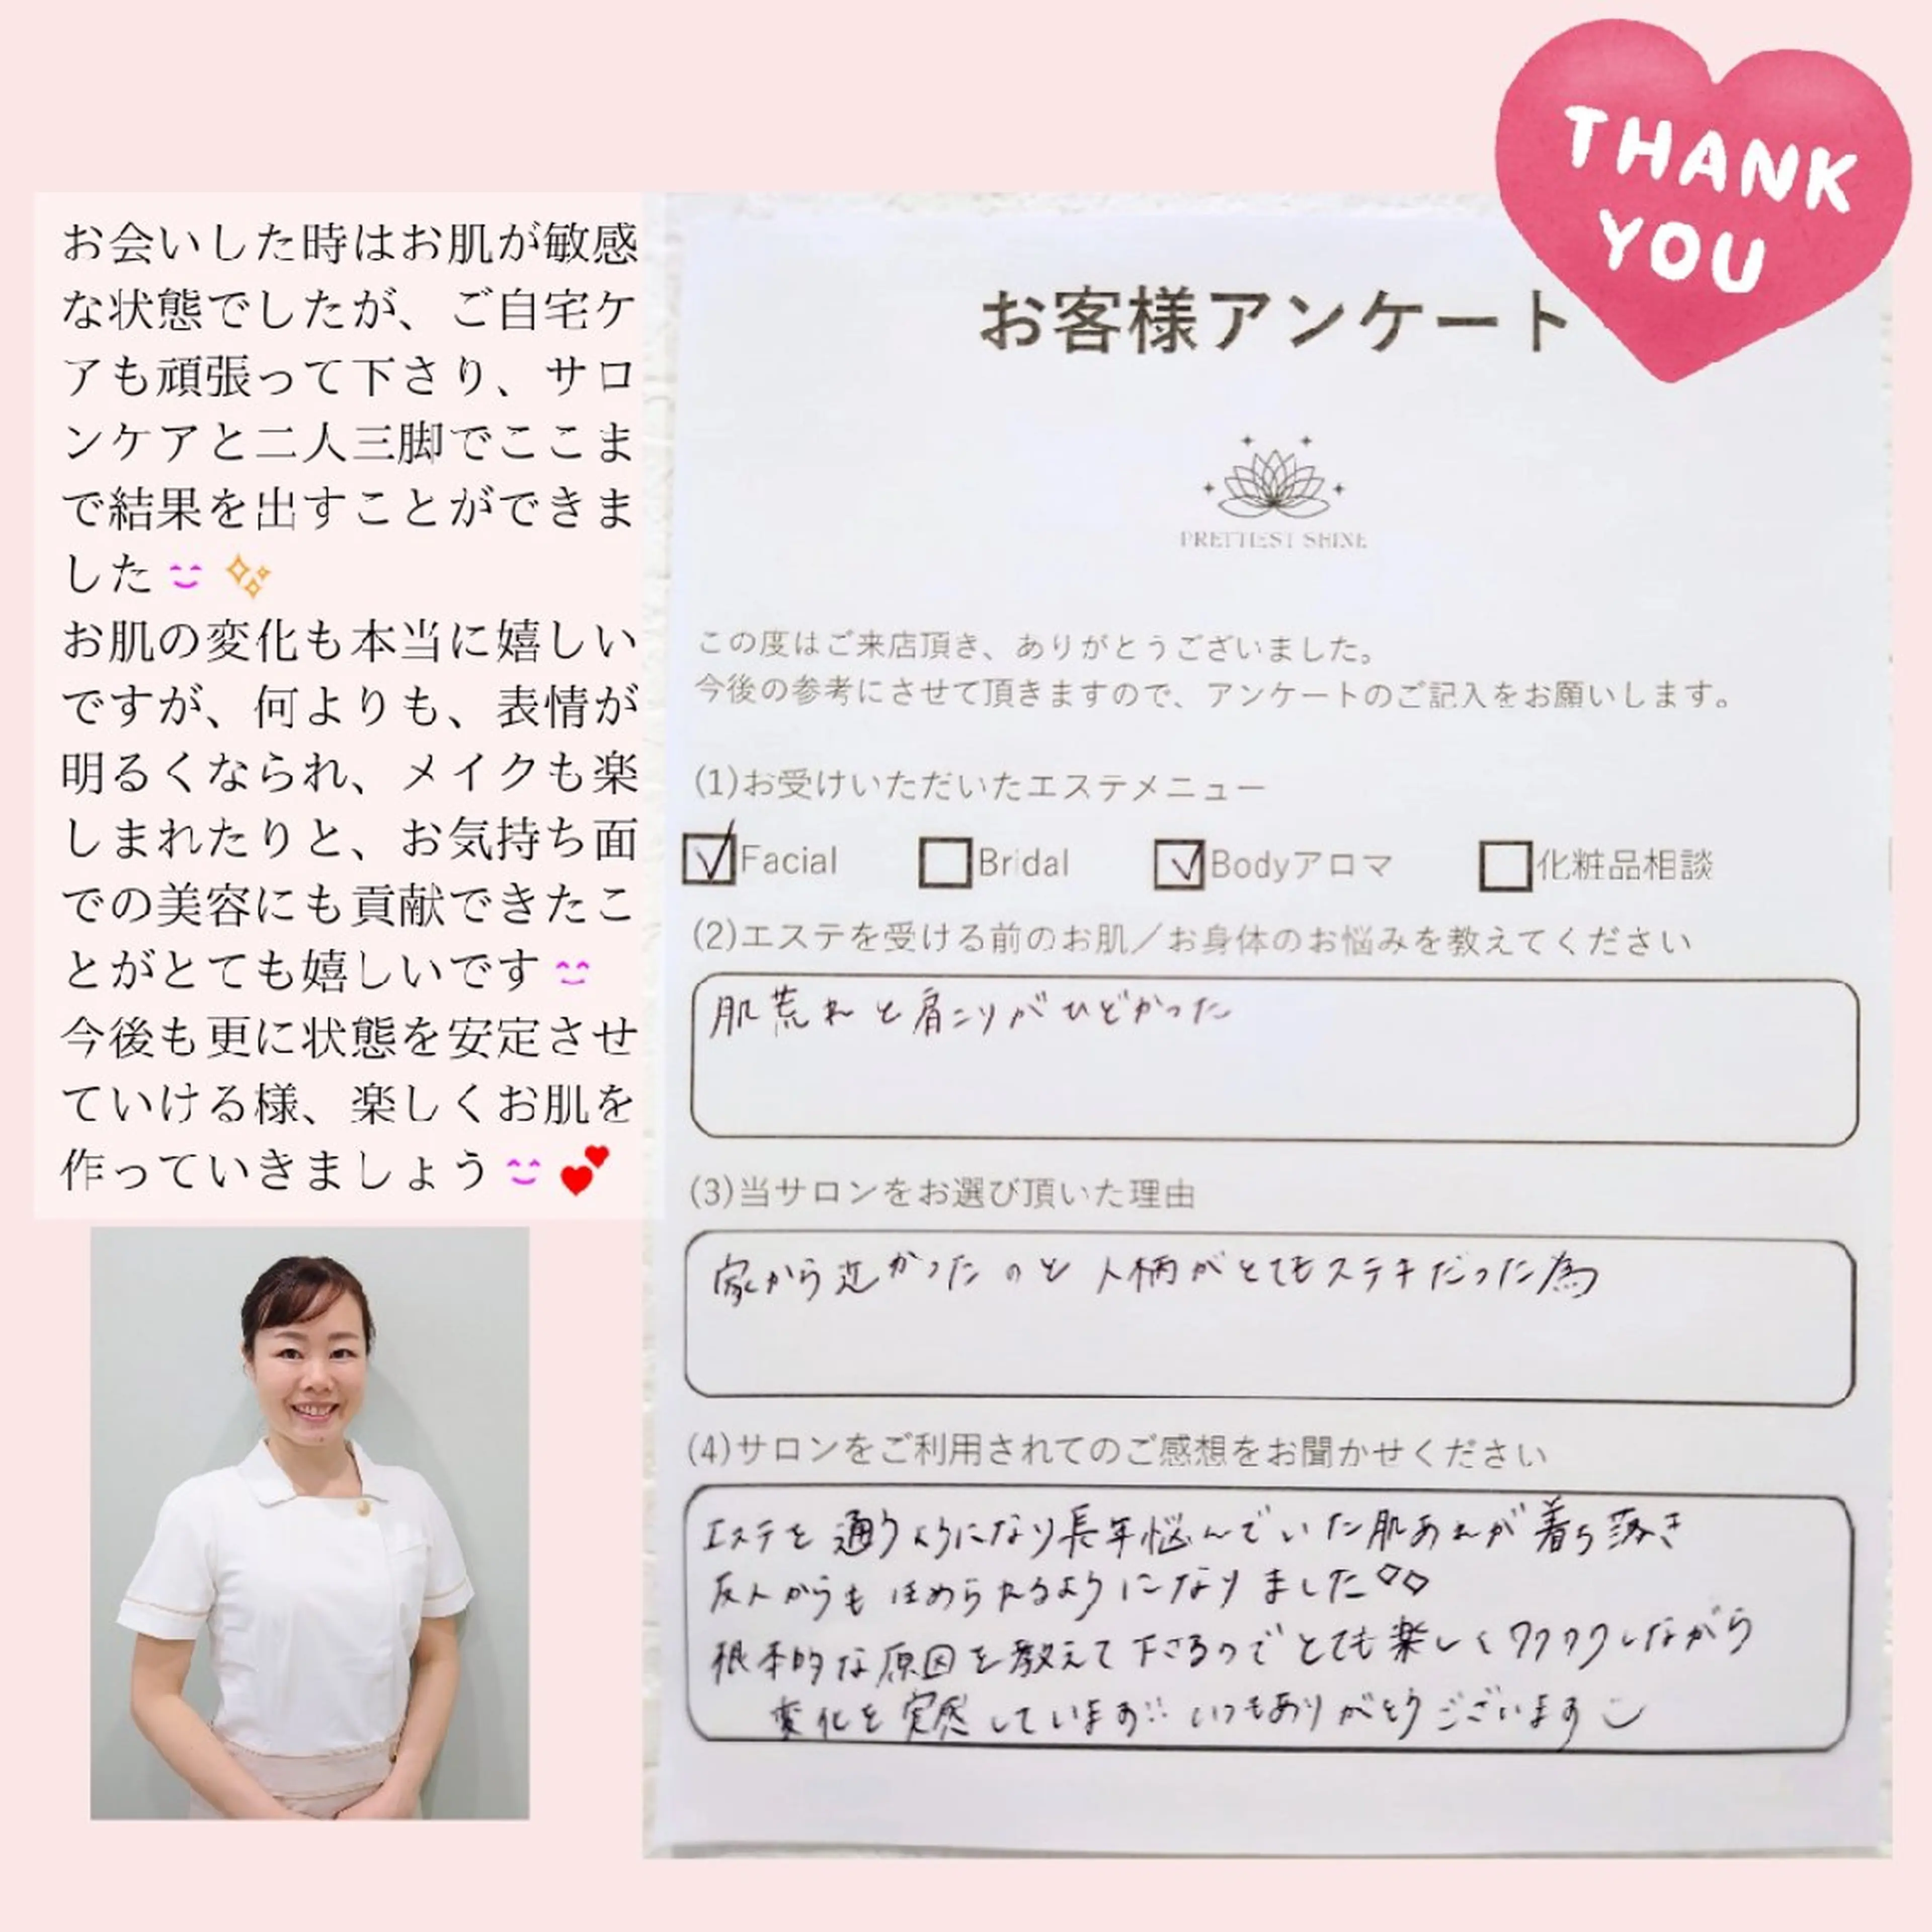 THANK
YOU
お会いした時はお肌が敏感
な状態でしたが、ご自宅ケ
アも頑張って下さり、サロ
ンケアと二人三脚でここま
で結果を出すことができま
した
お肌の変化も本当に嬉しい
ですが、何よりも、表情が
明るくなられ、メイクも楽
しまれたりと、お気持ち面
での美容にも貢献できたこ
とがとても嬉しいです
今後も更に状態を安定させ
ていける様、楽しくお肌を
作っていきましょう
お客様アンケート
PRETTIEST SHINE
この度はご来店頂き、ありがとうございました。
今後の参考にさせて頂きますので、アンケートのご記入をお願いします。
(1)お受けいただいたエステメニュー
Facial Bridal Bodyアロマ 化粧品相談
(2)エステを受ける前のお肌／お身体のお悩みを教えてください
肌荒れと肩こりがひどかった
(3)当サロンをお選び頂いた理由
家から近かったのと人柄がとてもステキだった為
(4)サロンをご利用されてのご感想をお聞かせください
エステを通うようになり長年悩んでいた肌あれが着ち落き
友人からもほめられるようになりました◇◇
根本的な原因を教えて下さるのでとても楽しくワクワクしながら
変化を実感しています!! いつもありがとうございます